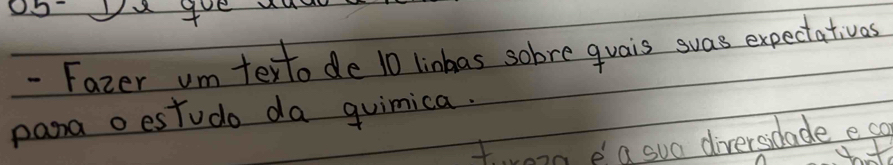 05- De que
- Fazer um texto de 10 linhas sobre quais suas expectativas
para o estudo da quimica.
é a sua diversidade e